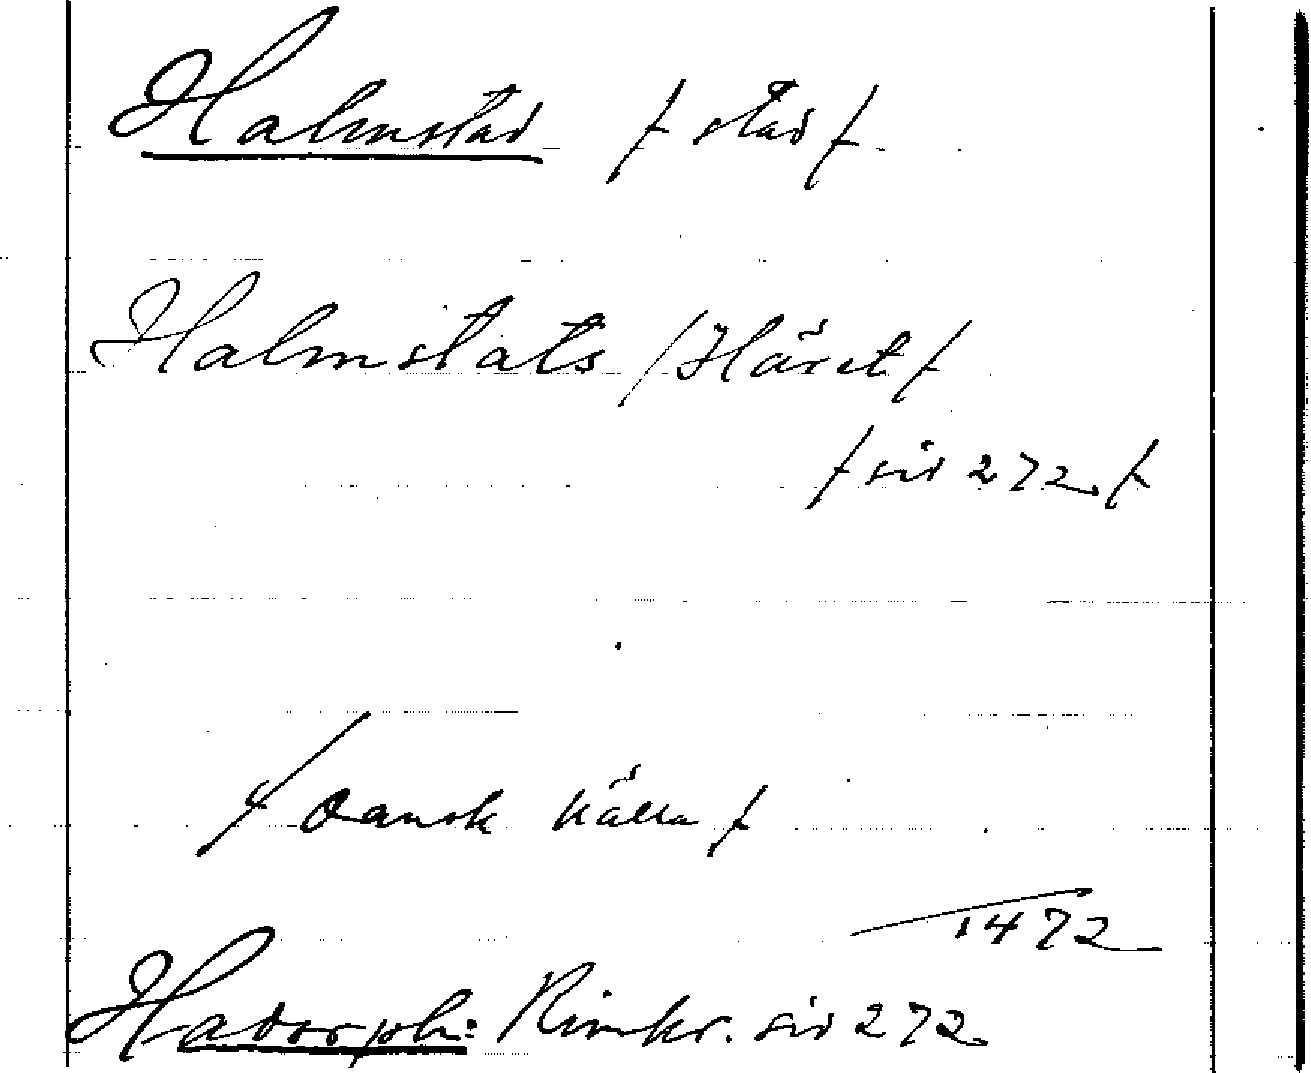 Halmstad /: stad /:
Halmstats /Häret/:
/: sid 272. /:
/: Dansk källa /:
1472
Hadorph: Rimkr. sid 272.